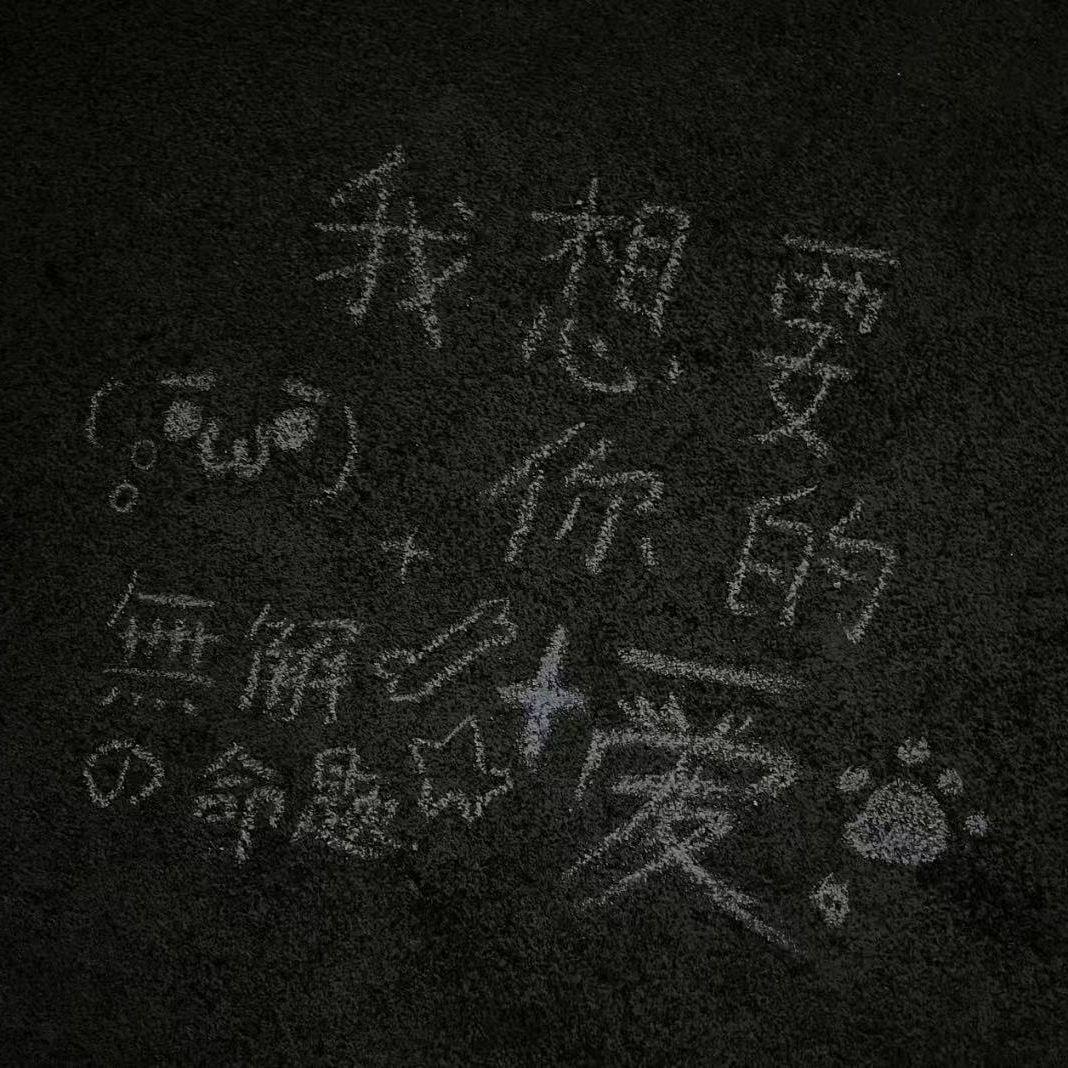 我想要
你的
一爱
無解
の命题